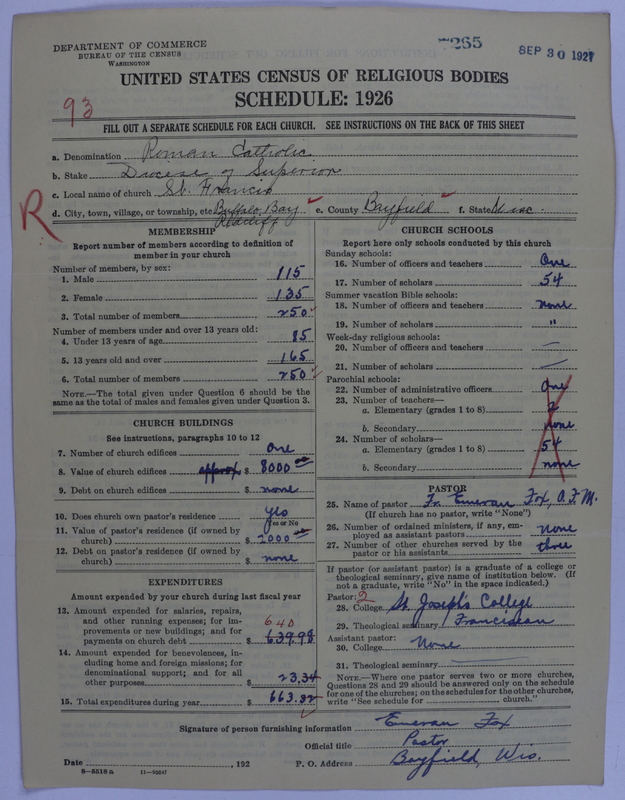 DEPARTMENT OF COMMERCE
BUREAU OF THE CENSUS
WASHINGTON
265
SEP 30 1927
UNITED STATES CENSUS OF RELIGIOUS BODIES
SCHEDULE: 1926
93
FILL OUT A SEPARATE SCHEDULE FOR EACH CHURCH. SEE INSTRUCTIONS ON THE BACK OF THIS SHEET
a. Denomination Roman Catholic
b. Stake Diocese of Superior
c. Local name of church St. Francis
R
d. City, town, village, or township, etc. Buffalo Bay e. County Bayfield f. State Wisc.
Redcliff
MEMBERSHIP
Report number of members according to definition of
member in your church
Number of members, by sex:
1. Male 115
2. Female 135
3. Total number of members 250
Number of members under and over 13 years old:
4. Under 13 years of age 85
5. 13 years old and over 165
6. Total number of members 250
NOTE.—The total given under Question 6 should be the
same as the total of males and females given under Question 3.
CHURCH BUILDINGS
See instructions, paragraphs 10 to 12
7. Number of church edifices One
8. Value of church edifices approx $ 8000 00
9. Debt on church edifices $ none
10. Does church own pastor's residence yes
Yes or No
11. Value of pastor's residence (if owned by
church) $ 2000 00
12. Debt on pastor's residence (if owned by
church) $ none
EXPENDITURES
Amount expended by your church during last fiscal year
13. Amount expended for salaries, repairs,
and other running expenses; for im-
provements or new buildings; and for
payments on church debt $ 639.98
640
14. Amount expended for benevolences, in-
cluding home and foreign missions; for
denominational support; and for all
other purposes $ 23.34
15. Total expenditures during year $ 663.32
CHURCH SCHOOLS
Report here only schools conducted by this church
Sunday schools:
16. Number of officers and teachers One
17. Number of scholars 54
Summer vacation Bible schools:
18. Number of officers and teachers none
19. Number of scholars "
Week-day religious schools:
20. Number of officers and teachers —
21. Number of scholars —
Parochial schools:
22. Number of administrative officers One
23. Number of teachers—
a. Elementary (grades 1 to 8) 2
b. Secondary none
24. Number of scholars—
a. Elementary (grades 1 to 8) 54
b. Secondary none
PASTOR
25. Name of pastor Fr. Emeran Fox, O.F.M.
(If church has no pastor, write "None")
26. Number of ordained ministers, if any, em-
ployed as assistant pastors none
27. Number of other churches served by the
pastor or his assistants three
If pastor (or assistant pastor) is a graduate of a college or
theological seminary, give name of institution below. (If
not a graduate, write "No" in the space indicated.)
Pastor: 2
28. College St. Joseph's College
29. Theological seminary Franciscan
Assistant pastor:
30. College None
31. Theological seminary
NOTE.—Where one pastor serves two or more churches,
Questions 28 and 29 should be answered only on the schedule
for one of the churches; on the schedules for the other churches,
write "See schedule for church."
Signature of person furnishing information Emeran Fox
Official title Pastor
Date , 192 P. O. Address Bayfield, Wis.
8—5518a 11—9504f